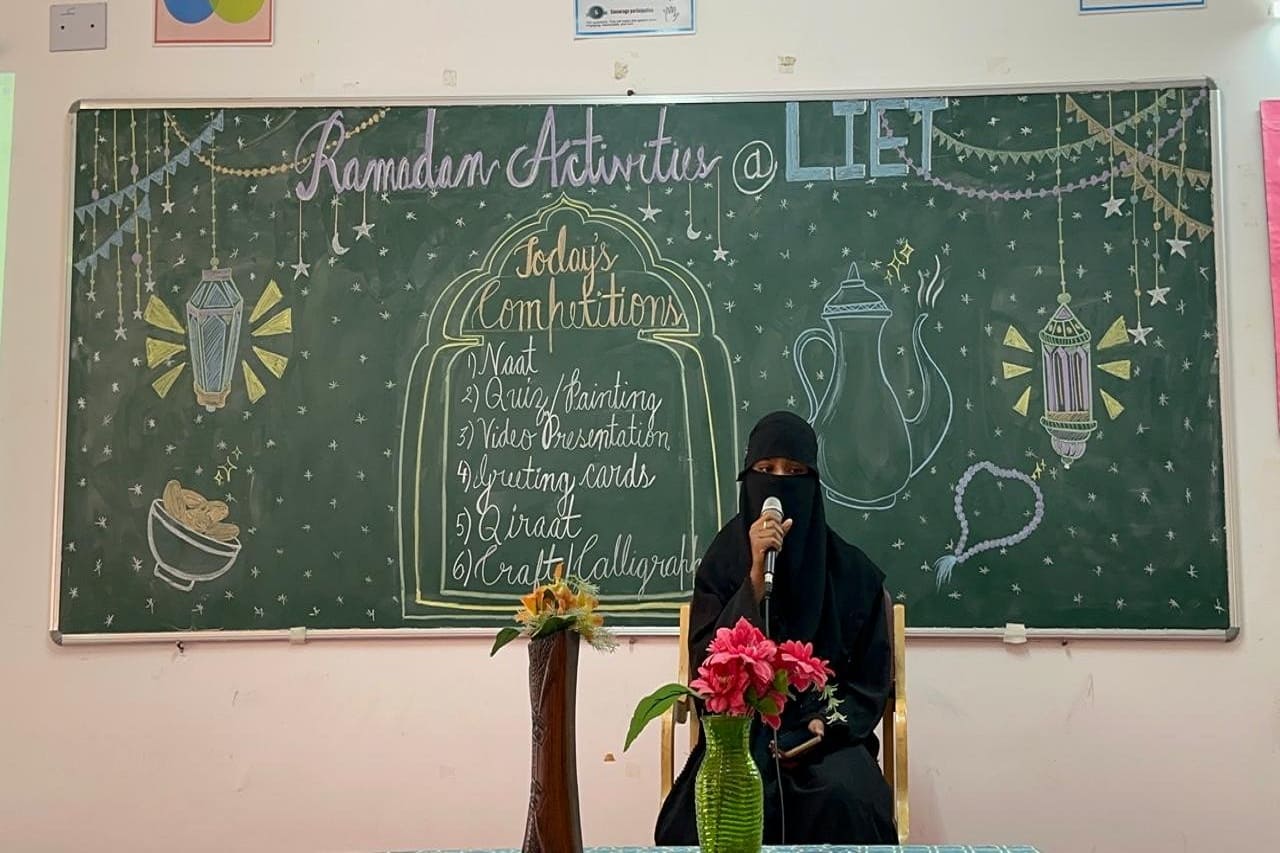 Encourage participation
Ramadan Activities @ LIET
Today's
Competitions
1) Naat
2) Quiz / Painting
3) Video Presentation
4) Greeting cards
5) Qiraat
6) Craft / Calligraph